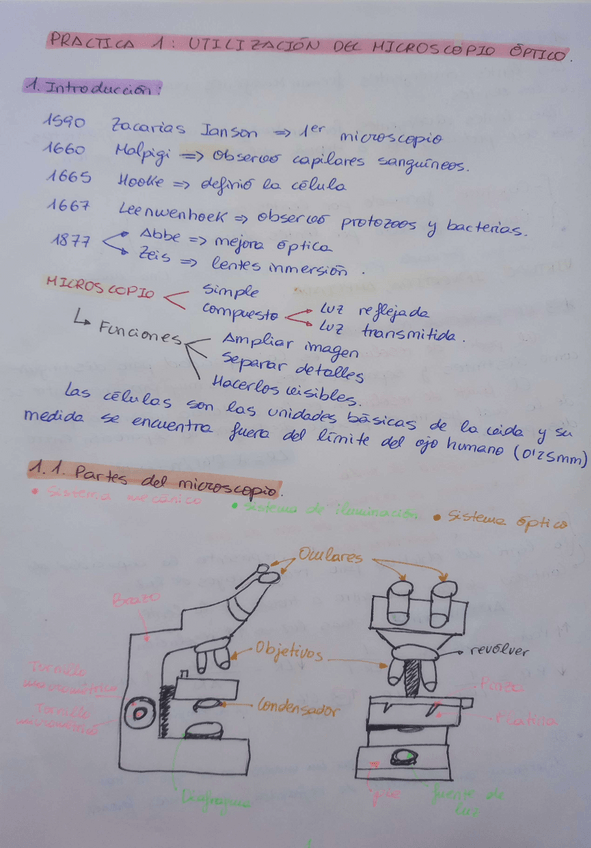 PRACTICA 1: UTILIZACIÓN DEL MICROSCOPIO ÓPTICO.
1. Introducción:
1590 Zacarias Janson => 1er microscopio
1660 Malpigi => observó capilares sanguíneos.
1665 Hooke => definió la célula
1667 Leenwenhoek => observó protozoos y bacterias.
1877 Abbe => mejora óptica
Zeis => lentes inmersión.
MICROSCOPIO simple
compuesto luz reflejada
luz transmitida.
↳ Funciones Ampliar imagen
Separar detalles
Hacerlos visibles.
Las células son las unidades básicas de la vida y su
medida se encuentra fuera del límite del ojo humano (0'25mm)
1.1. Partes del microscopio.
• Sistema mecánico
• Sistema de iluminación • Sistema óptico
Oculares
Brazo
Objetivos
revólver
Tornillo
macrométrico
Tornillo
micrométrico
Condensador
Pinza
Platina
Diafragma
pie
fuente de
luz